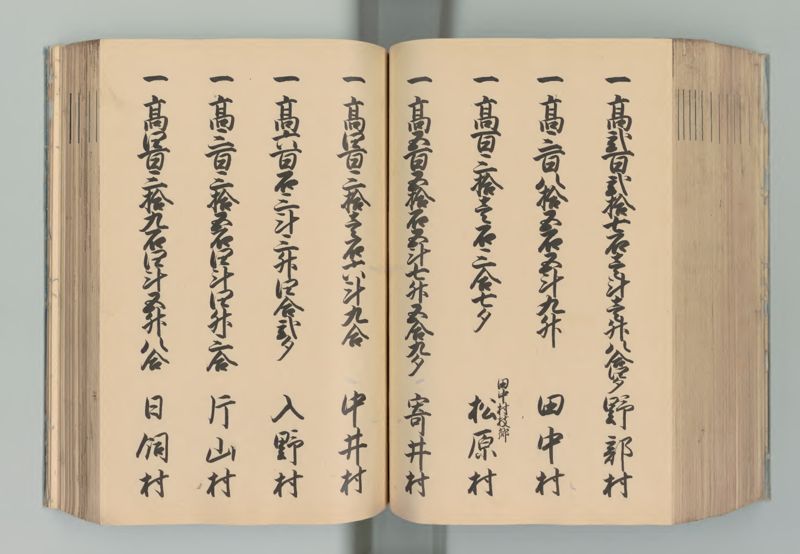 一 高弐百弐拾七石三斗壱升八合四夕 野部村
一 高三百八拾五石五斗九升 田中村
田中村枝郷
一 高百三拾壱石三合七夕 松原村
一 高五百五拾石五斗七升五合九夕 寄井村
一 高四百三拾壱石六斗九合 中井村
一 高六百石三斗三升四合弐夕 入野村
一 高三百三拾五石四斗四升三合 片山村
一 高四百三拾九石四斗五升八合 日飼村